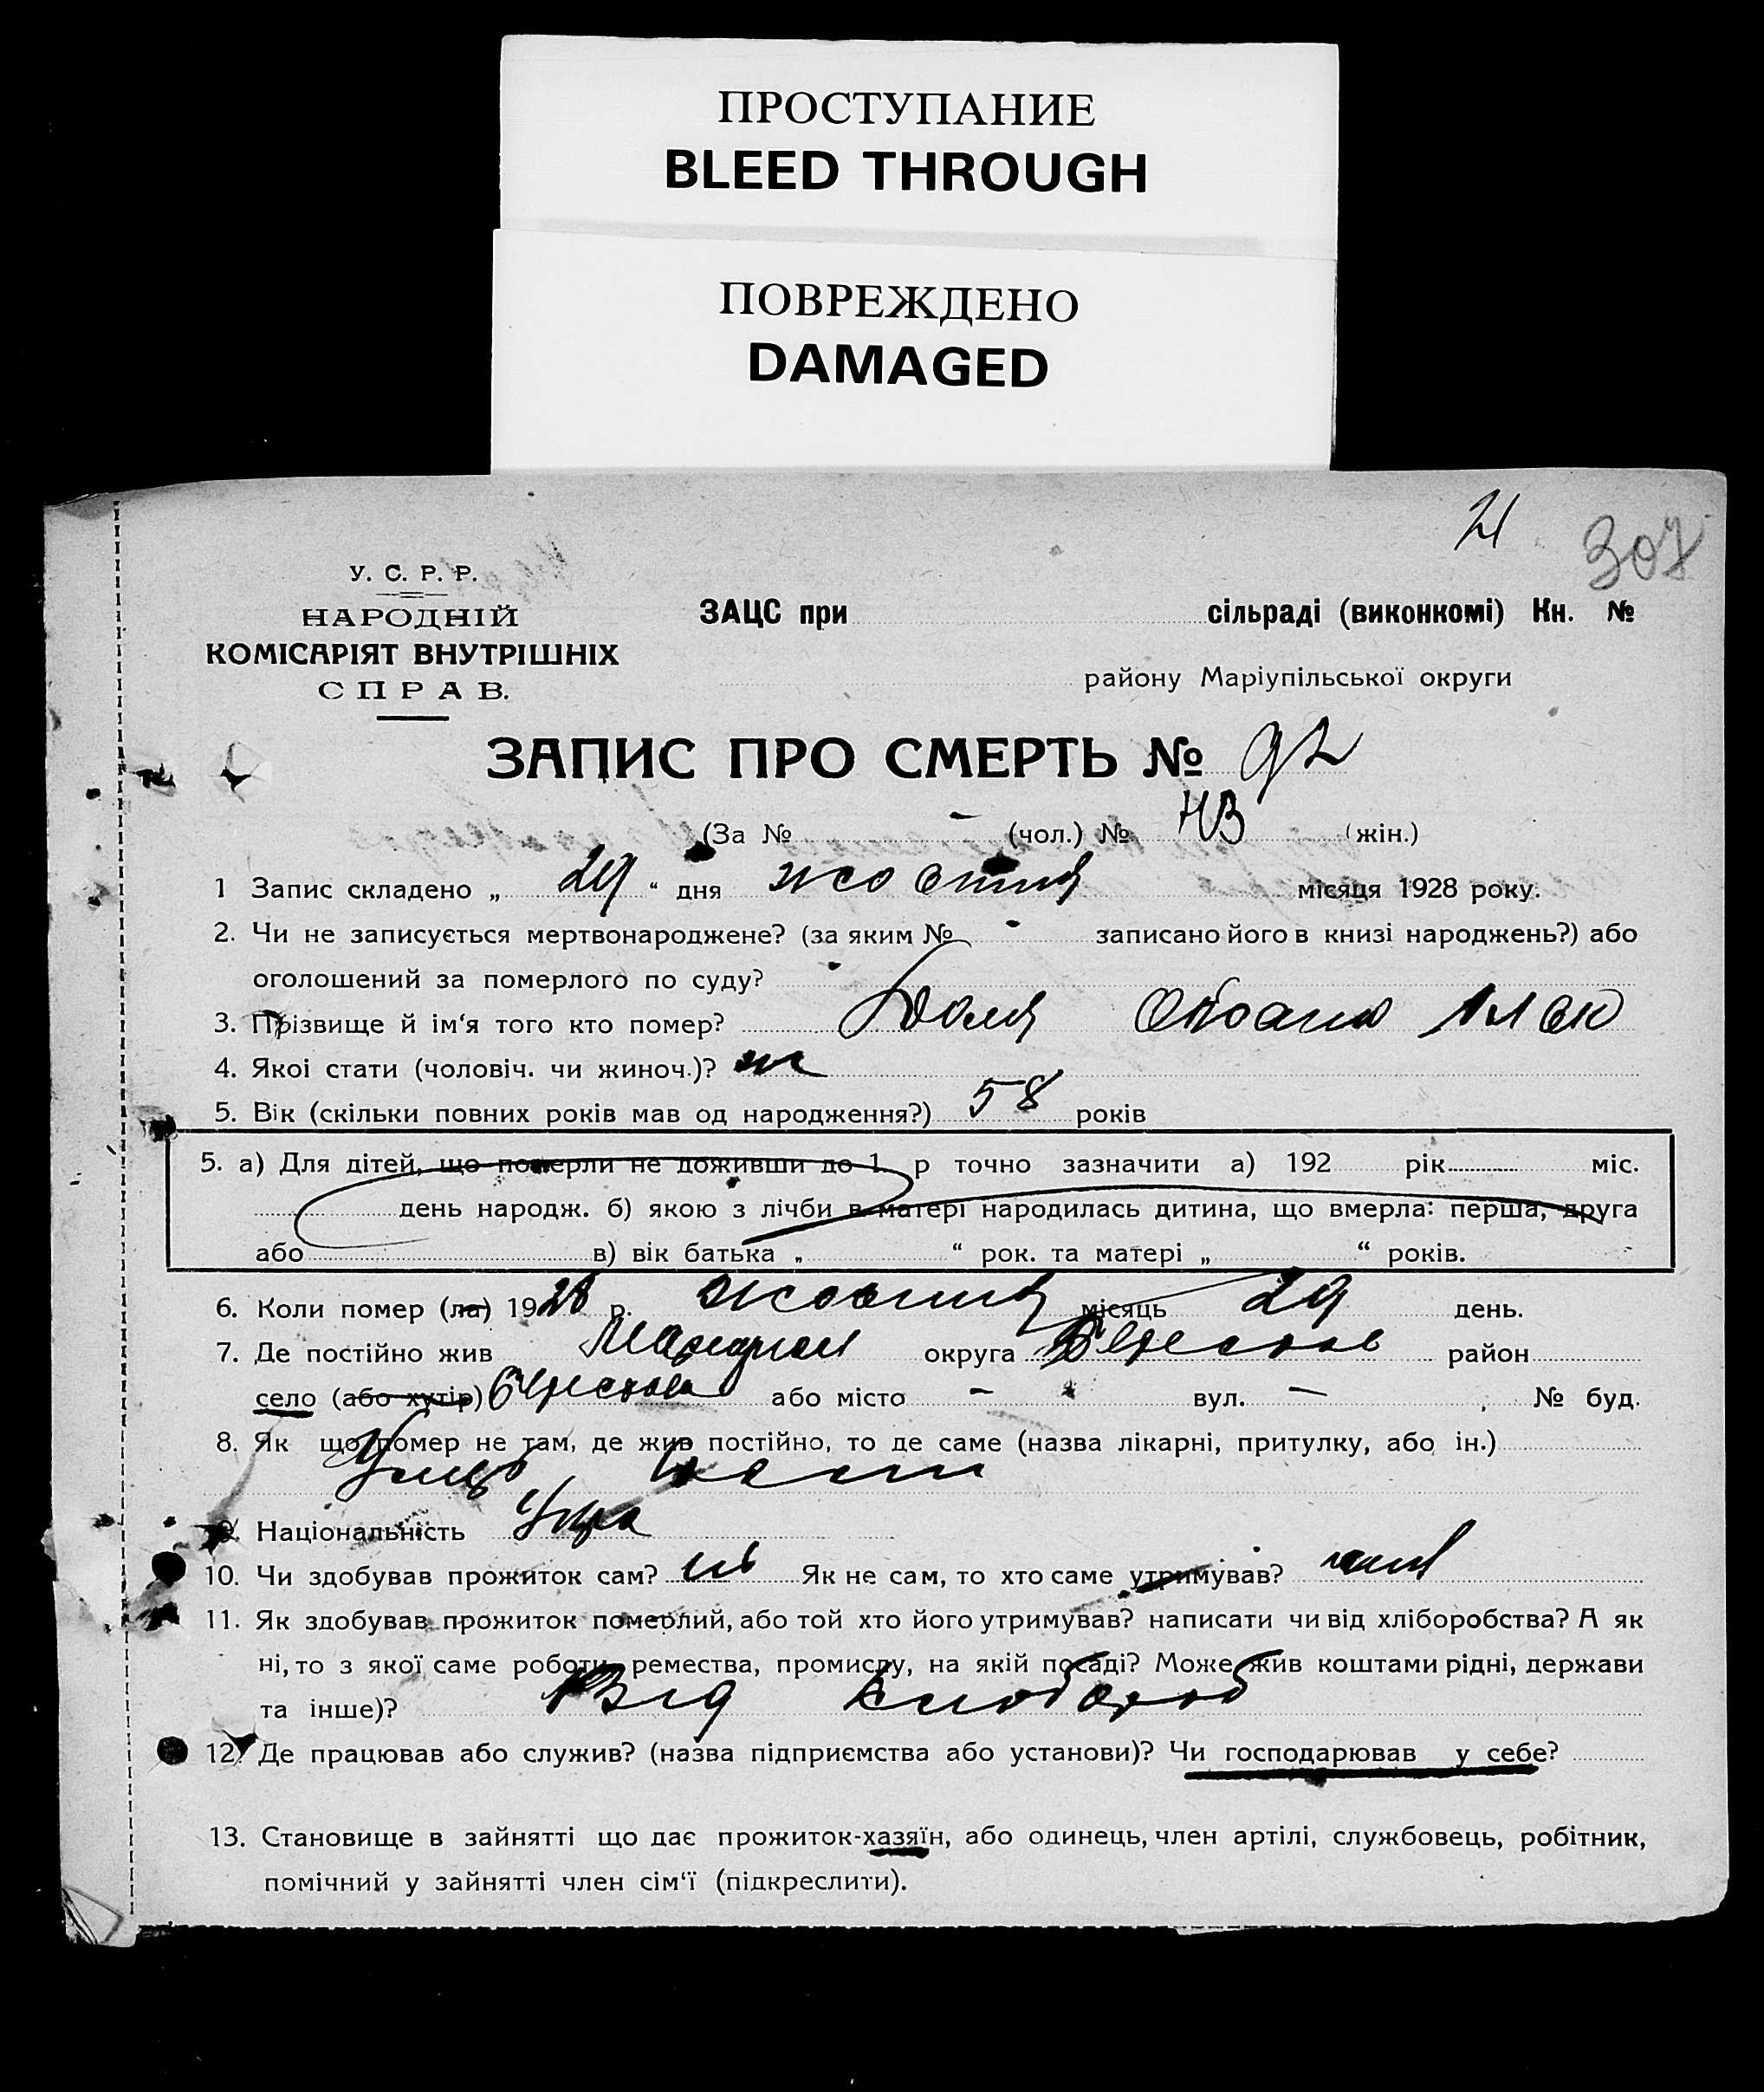 ПРОСТУПАНИЕ
BLEED THROUGH
ПОВРЕЖДЕНО
DAMAGED
21 307
У. С. Р. Р.
НАРОДНІЙ
КОМІСАРІЯТ ВНУТРІШНІХ
СПРАВ.
ЗАЦС при сільраді (виконкомі) Кн. №
району Маріупільської округи
ЗАПИС ПРО СМЕРТЬ № 92
(За № - (чол.) № (жін.)
1 Запис складено „ 29 “ дня жовтня місяця 1928 року.
2. Чи не записується мертвонароджене? (за яким № - записано його в книзі народжень?) або
оголошений за померлого по суду?
3. Прізвище й ім‘я того кто помер?
4. Якоі стати (чоловіч. чи жиноч.)? ж
5. Вік (скільки повних років мав од народження?) 58 років
5. а) Для дітей, що померли не доживши до 1 р точно зазначити а) 192 рік міс.
день народж. б) якою з лічби в матері народилась дитина, що вмерла: перша, друга
або в) вік батька „ “ рок. та матері „ “ років.
6. Коли помер (ла) 1928 р. жовтня місяць 29 день.
7. Де постійно жив округа район
село (або хутір) або місто - вул. — , № буд.
8. Як що помер не там, де жив постійно, то де саме (назва лікарні, притулку, або ін.)
9. Національність Укра
10. Чи здобував прожиток сам? Як не сам, то хто саме утримував?
11. Як здобував прожиток померлий, або той хто його утримував? написати чи від хліборобства? А як
ні, то з якої саме роботи, ремества, промислу, на якій посаді? Може жив коштами рідні, держави
та інше)? Від
12. Де працював або служив? (назва підприємства або установи)? Чи господарював у себе?
13. Становище в зайнятті що дає прожиток-хазяїн, або одинець, член артілі, службовець, робітник,
помічний у зайнятті член сім‘ї (підкреслити).